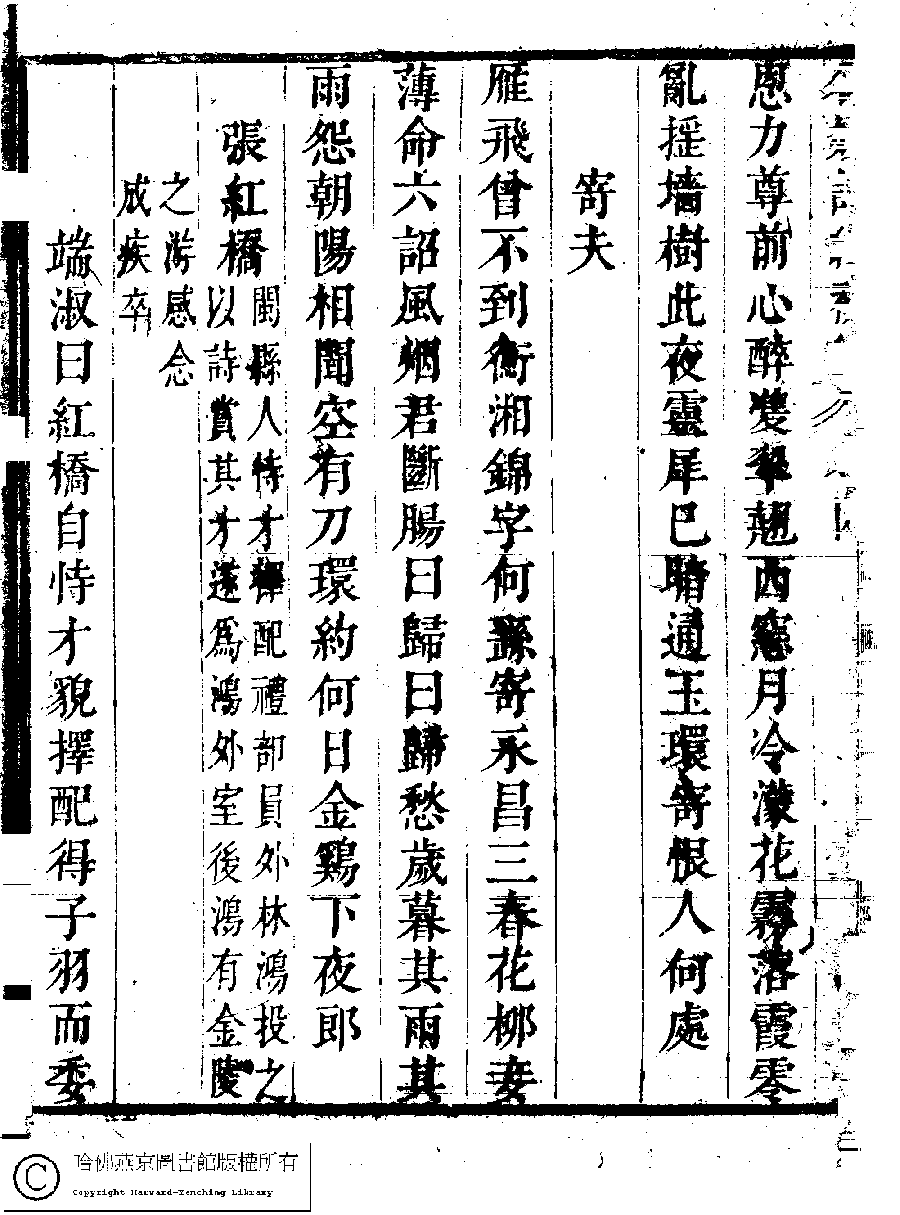 恩力尊前心醉雙翠翹西窻月冷濛花霧落霞零
亂搖墻樹此夜靈犀已暗通玉環寄恨人何處
寄夫
雁飛曾不到衡湘錦字何繇寄永昌三春花柳妾
薄命六詔風烟君斷腸曰歸曰歸愁歲暮其雨其
雨怨朝陽相聞空有刀環約何日金鷄下夜郎
張紅橋閩縣人恃才擇配禮部員外林鴻投之
以詩賞其才遂為鴻外室後鴻有金陵
之游感念
成疾卒
端淑曰紅橋自恃才貌擇配得子羽而委
哈佛燕京圖書館版權所有
Copyright Harvard-Yenching Library